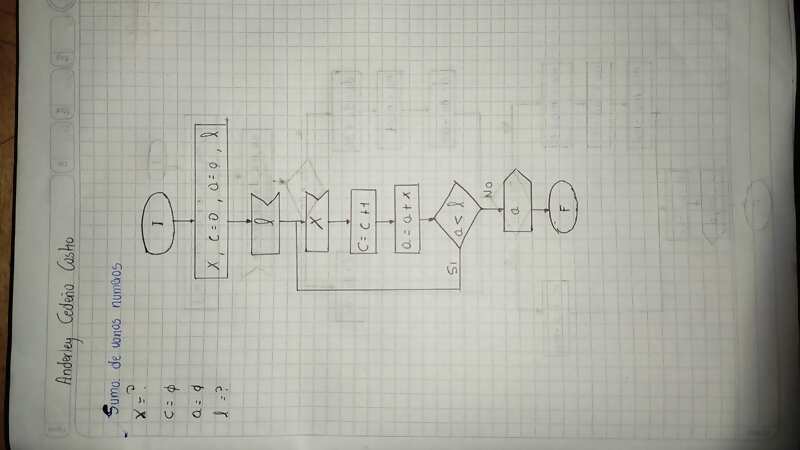 Anderley Cedeño Castro
- Suma: de varios numeros
X = ?
C = ϕ
a = ϕ
l = ?
I
X, C=0, a=0, l
l
X
C = C + 1
a = a + x
a < l
Si
No
a
F